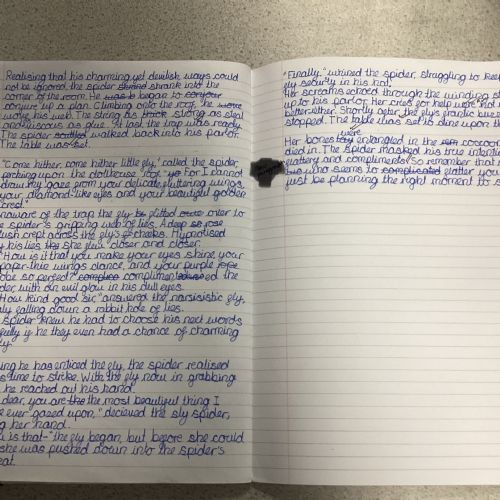 Realising that his charming yet devilish ways could
not be ignored, the spider shrank into the
corner of the room. He began to
conjure up a plan. Climbing onto the roof, he
wove his web. The string as strong as steel
and viscous as glue. At last the trap was ready.
The spider walked back into his parlor.
The table was set.
"Come hither, come hither little fly," called the spider,
perking upon the dollhouse roof. "For I cannot
draw my gaze from your delicate fluttering wings,
your diamond-like eyes and your beautiful golden
crest."
naware of the trap the fly flitted over to
e spider's gripping web of lies. A deep rose
lush crept across the fly's cheeks. Hypnotised
y his lies the she flew closer and closer.
"How is it that you make your eyes shine your
paper-thin wings dance, and your purple
obe so perfect?" complimented the
der with an evil glow in his dull eyes.
How kind good sir," answered the narsisistic fly,
ly falling down a rabbit hole of lies.
spider knew he had to choose his next words
fully if he they even had a chance of charming
ly.
ing he has enticed the fly, the spider realised
s time to strike. With the fly now in grabbing
he reached out his hand.
dear, you are the most beautiful thing I
e ever gazed upon," decieved the sly spider,
g her hand.
w is that-" the fly began, but before she could
she was pushed down into the spider's
eat.
"Finally," whined the spider, struggling to keep
fly security in his hat.
Her screams echoed through the winding st
up to his parlor. Her cries for help were
Shortly after, the fly's frantic buzz
stopped. The table was set to dine upon th
Her bones were entangled in the cocoon
died in. The spider masked his true intention
flattery and compliments. So remember that
who seems to flatter you
just be planning the right moment to s